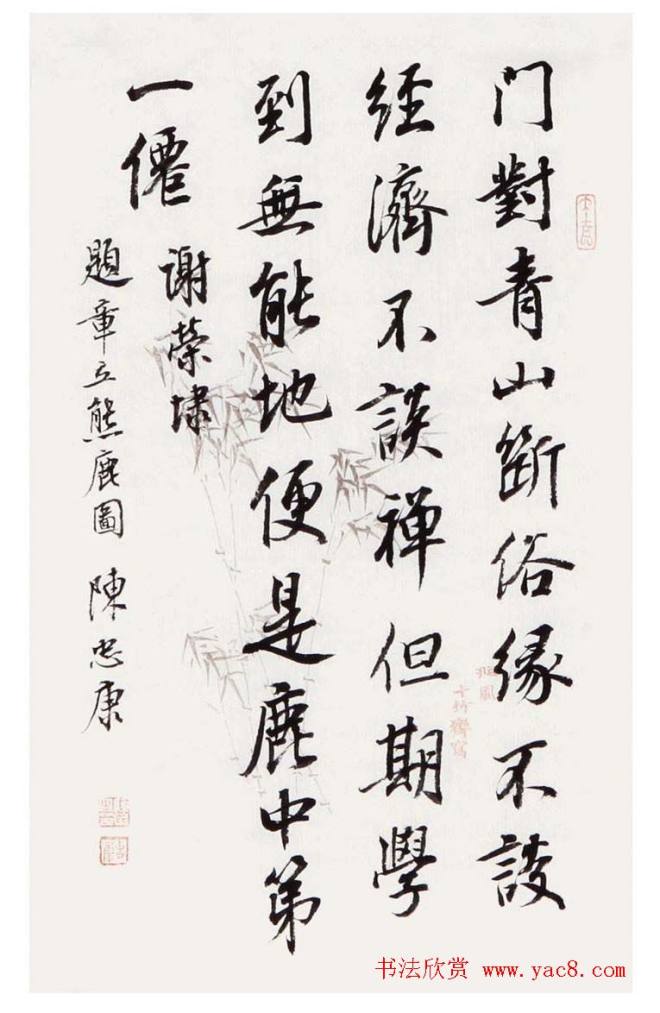 門對青山斷俗緣不談
經濟不談禪但期學
到無能地便是鹿中第
一僊 謝榮埭
題章立熊鹿圖 陳忠康
书法欣赏 www.yac8.com